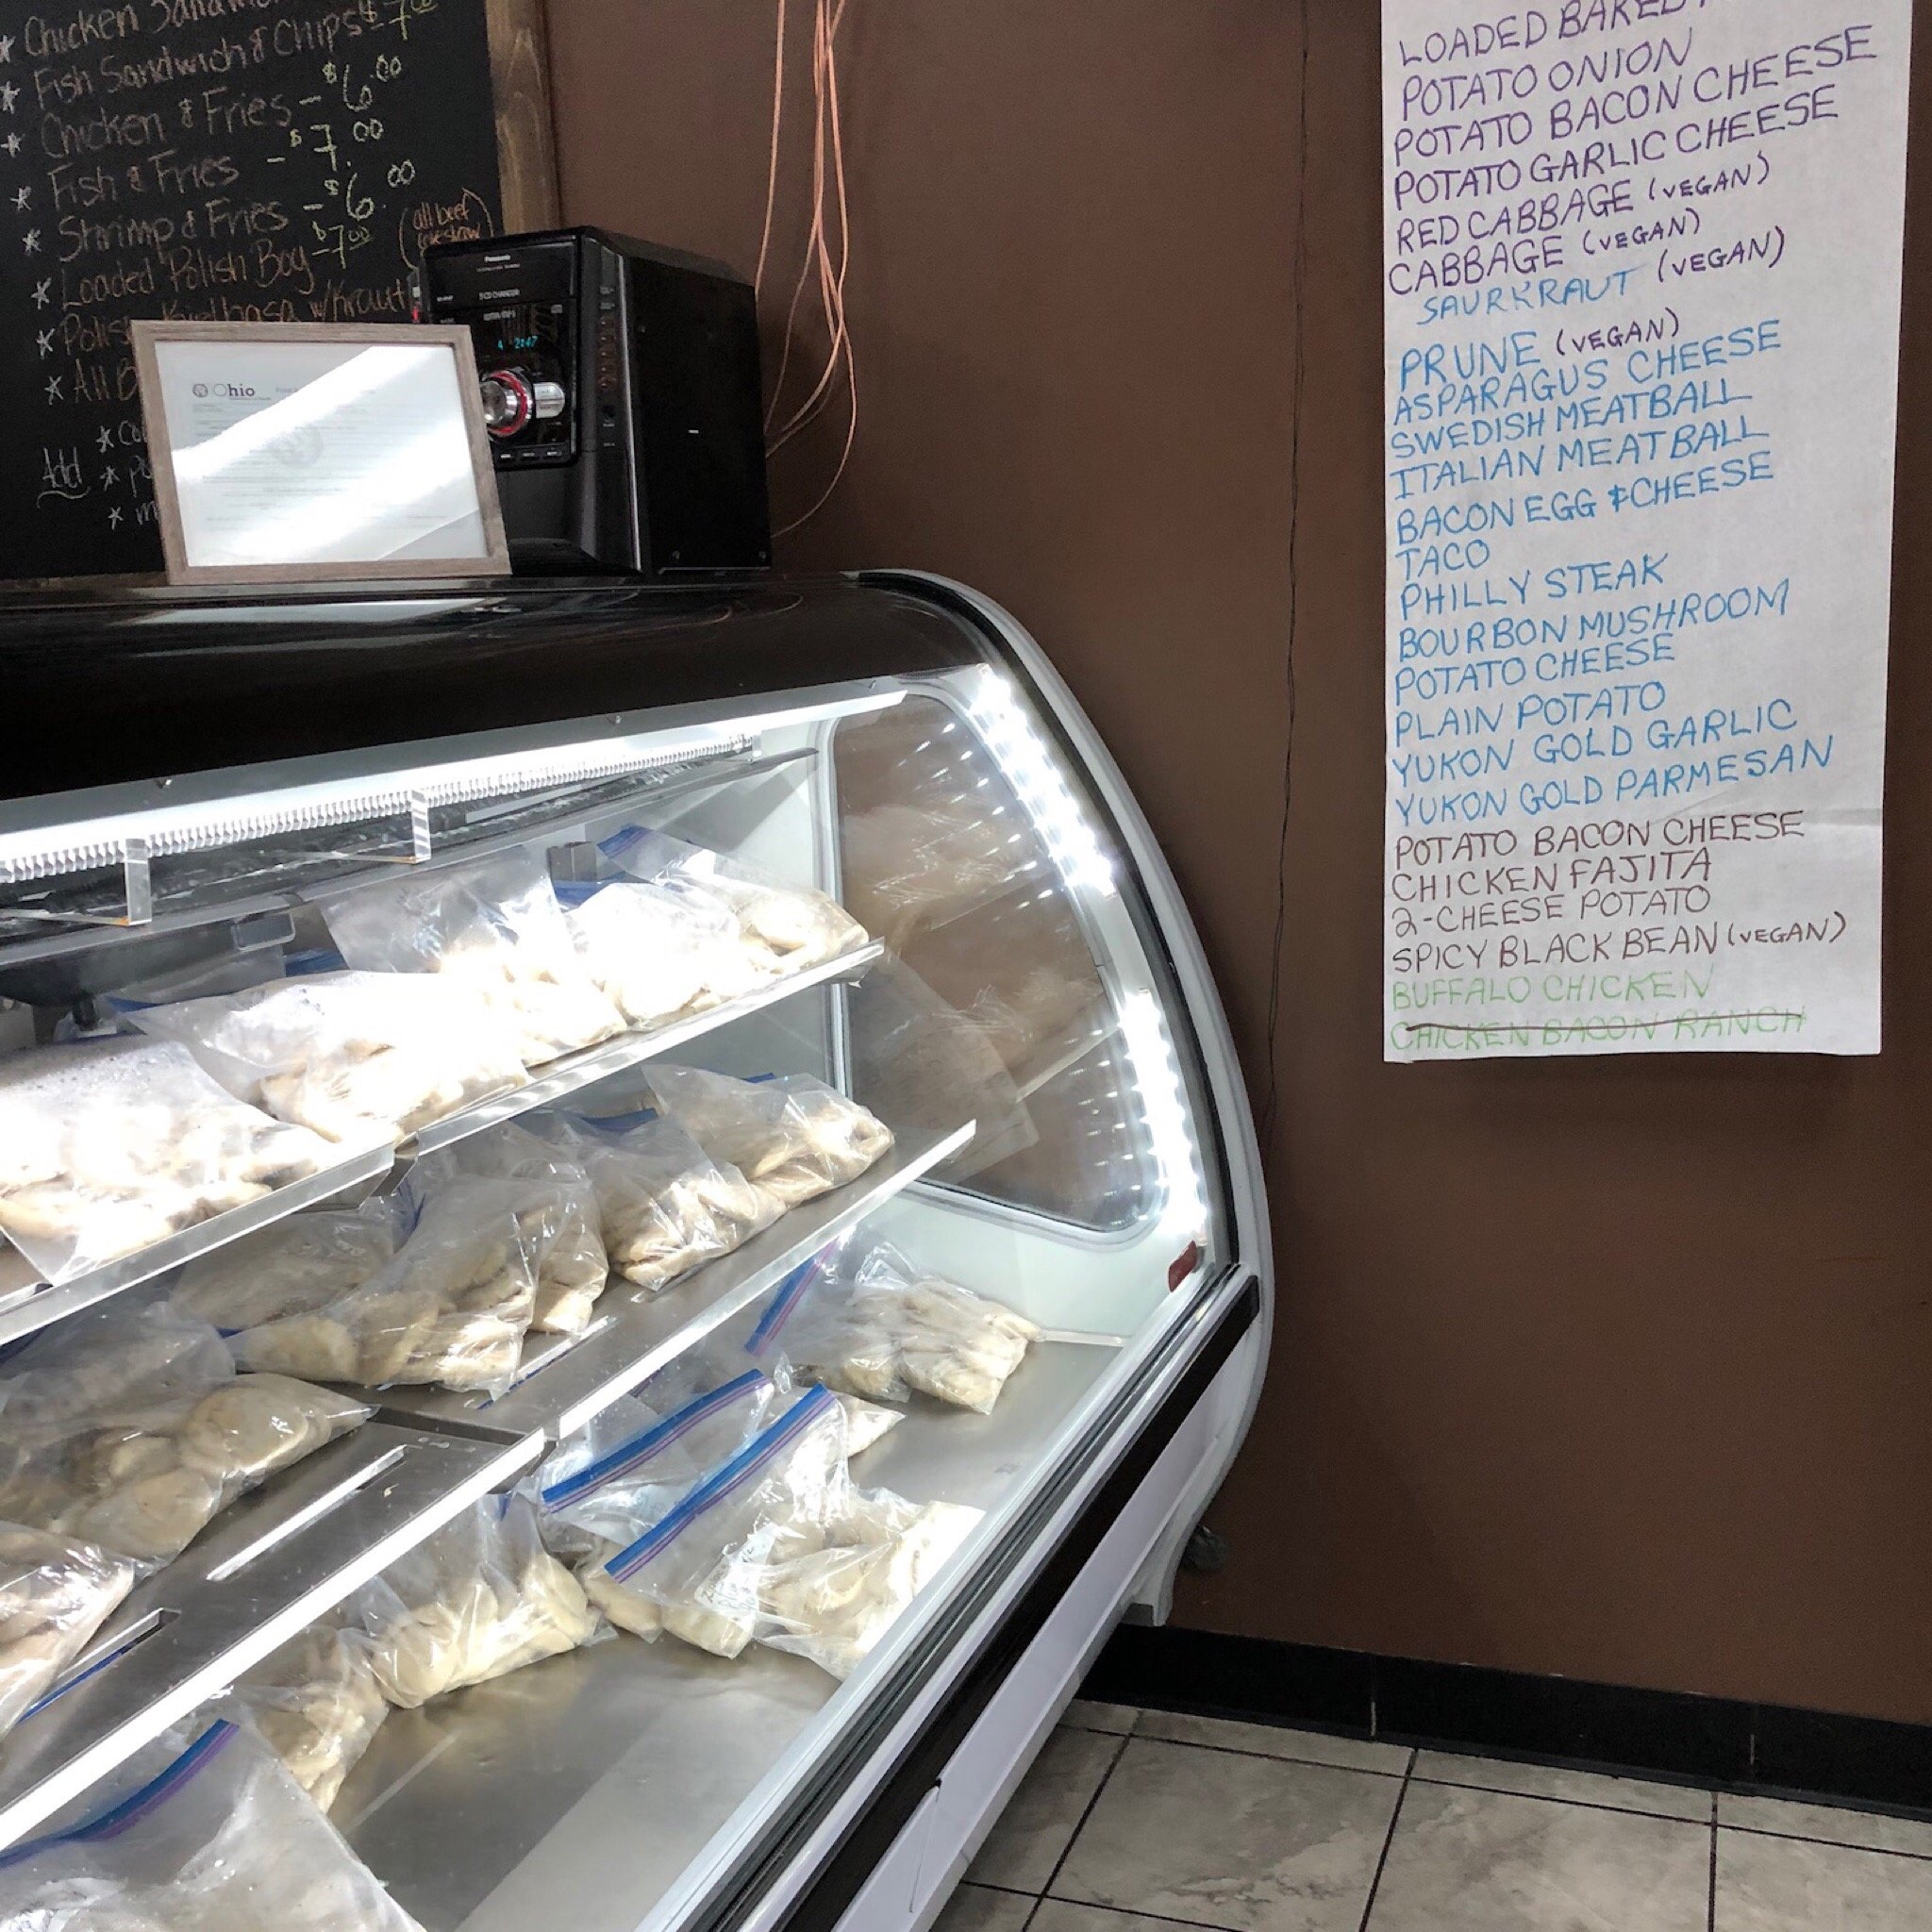 ★ Chicken
★ Fish Sandwich & Chips $7.00
★ Chicken & Fries - $6.00
★ Fish & Fries - $7.00
★ Shrimp & Fries - $6.00
★ Loaded Polish Boy - $7.00 (all beef
★ Kielbasa w/Kraut
★ All B
Add
Ohio
Panasonic
5 CD CHANGER
LOADED BAKED
POTATO ONION
POTATO BACON CHEESE
POTATO GARLIC CHEESE
RED CABBAGE (VEGAN)
CABBAGE (VEGAN)
SAURKRAUT (VEGAN)
PRUNE (VEGAN)
ASPARAGUS CHEESE
SWEDISH MEATBALL
ITALIAN MEATBALL
BACON EGG & CHEESE
TACO
PHILLY STEAK
BOURBON MUSHROOM
POTATO CHEESE
PLAIN POTATO
YUKON GOLD GARLIC
YUKON GOLD PARMESAN
POTATO BACON CHEESE
CHICKEN FAJITA
2-CHEESE POTATO
SPICY BLACK BEAN (VEGAN)
BUFFALO CHICKEN
CHICKEN BACON RANCH